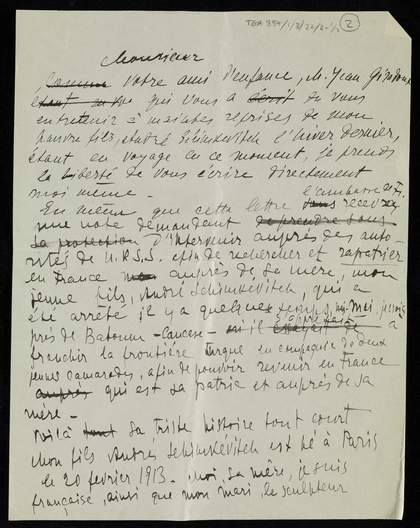 TGA 897/1/3/22/2-1/2
2
Monsieur
Votre ami d'enfance, M. Jean
qui vous a écrit du vous
entretenir à maintes reprises de mon
pauvre fils, André Schimkévitch l'hiver dernier,
étant en voyage en ce moment, je prends
la liberté de vous écrire directement
moi même -
l'ambassade
En même que cette lettre recevra
une note demandant de prendre sous
sa protection d'intervenir auprès des auto-
rités de U.R.S.S. afin de rechercher et rapatrier
en France auprès de sa mère, mon
jeune fils, André Schimkévitch, qui a
été arrêté il y a quelque temps, mi-mai
près de Batoum - Caucase - il essayait de
franchir la frontière turque en compagnie de deux
jeunes camarades, afin de pouvoir revenir en France
auprès qui est sa patrie et auprès de sa
mère -
Voilà tout sa triste histoire tout court
Mon fils André Schimkévitch est né à Paris
le 20 février 1913. Moi, sa mère, je suis
française, ainsi que mon mari, le sculpteur